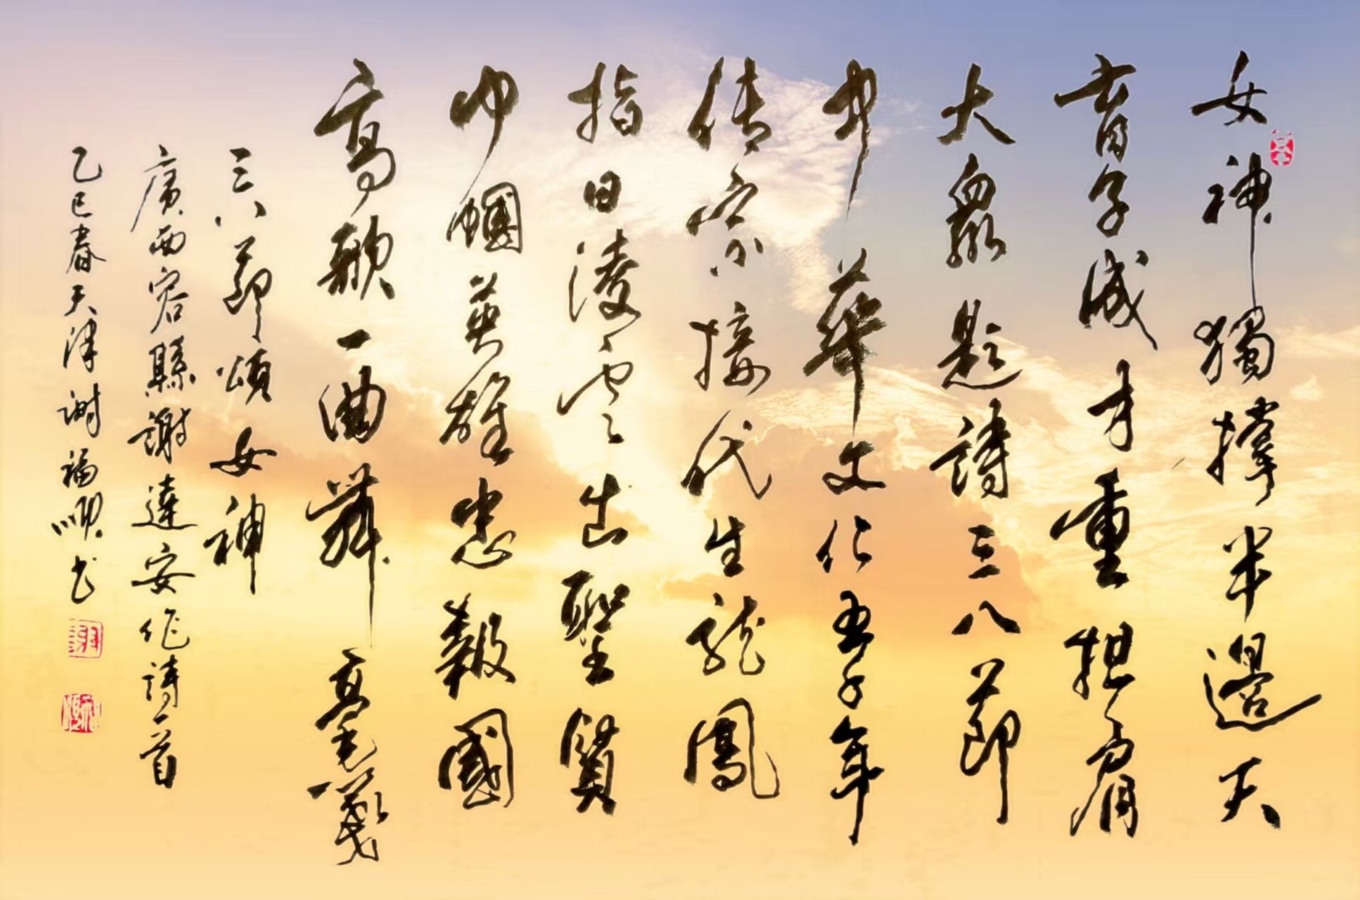 女神獨撐半邊天
育子成才重担肩
大眾題詩三八節
中華文化五千年
传宗接代生龙鳳
指日凌雲出聖賢
巾幗英雄忠報國
高歌一曲舞毫箋
三八節頌女神
廣西容縣謝達安作詩一首
乙巳春天津謝福順书